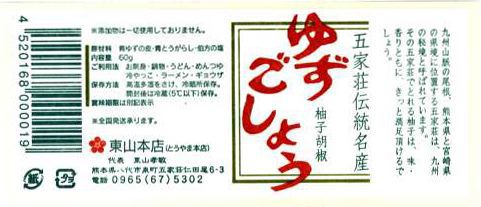 4520168000019
※添加物は一切使用しておりません。
原材料 青ゆずの皮・青とうがらし・伯方の塩
内容量 60g
ご利用法 お刺身・鍋物・うどん・めんつゆ
冷やっこ・ラーメン・ギョウザ
保存方法 高温多湿をさけ、冷暗所に保存。
開封後は冷蔵(5℃以下)保存。
賞味期限は別記表示
※全国発送承ります。
東山本店(とうやま本店)
代表 東山孝敏
熊本県八代市泉町五家荘仁田尾6-3
電話 0965(67)5302
紙
プラ
五家荘伝統名産
ゆず
ごしょう
柚子胡椒
九州山脈の尾根、熊本県と宮崎県
の県境に位置する五家荘は、九州
の秘境と呼ばれています。
その五家荘でとれる柚子は、味・
香りともに、きっと満足頂けるで
しょう。